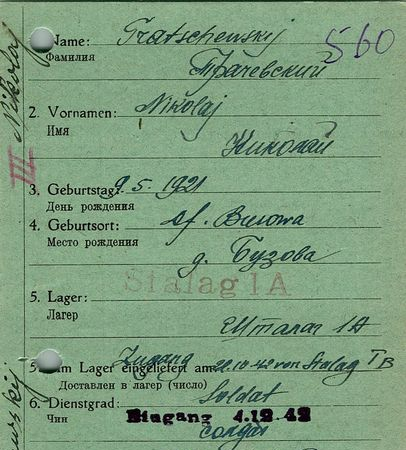 Name: Tratschewskij
560
Фамилия
Трачевский
Nikolaj
2. Vornamen: Nikolaj
Имя
Николай
III
3. Geburtstag: 9.5.1921
День рождения
4. Geburtsort: Df. Busowa
Место рождения
д. Бузова
Stalag 1A
5. Lager:
Лагерь
Шталаг 1A
Zugang
Im Lager eingeliefert am 22.10.42 von Stalag I B
Доставлен в лагерь (число)
6. Dienstgrad: Soldat
Чин
Eingang 4.12.42
солдат